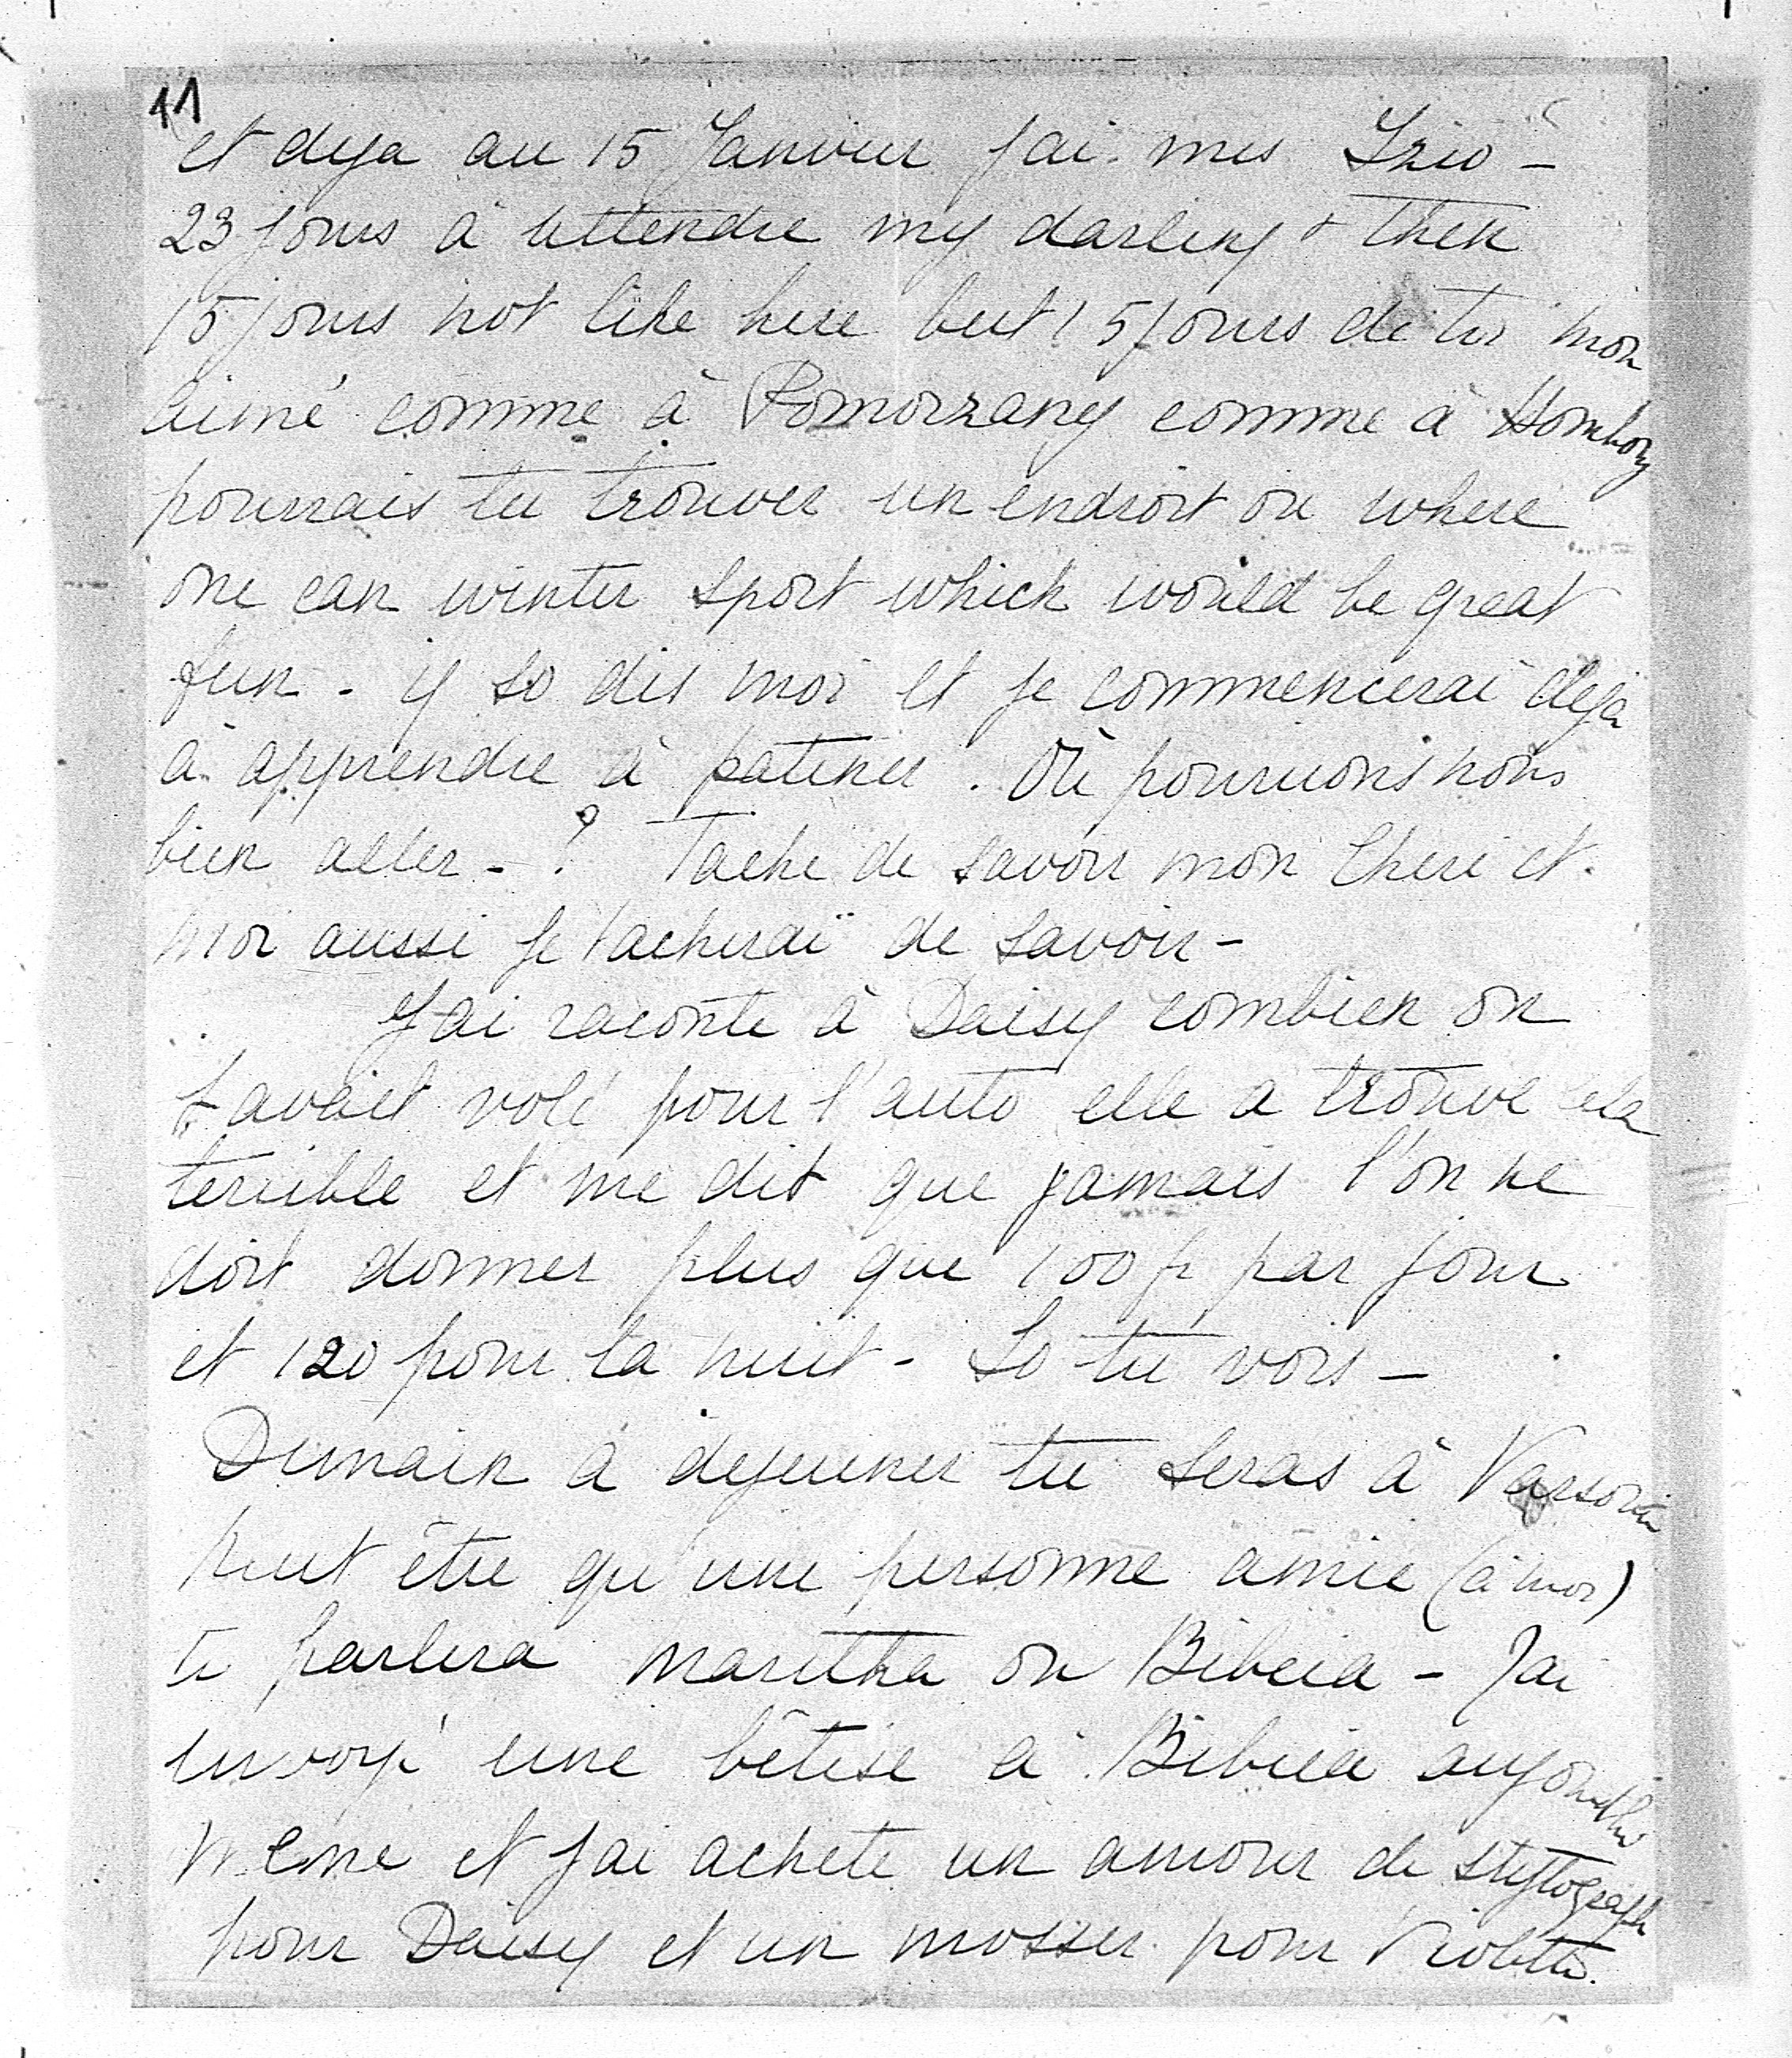 11
et deja au 15 Janvier j'ai mes Izio -
23 jours à attendre my darling & then
15 jours not like here but 15 jours de toi mon
aimé comme à Pomorzany comme à Hombourg
pourrais tu trouver un endroit ou where
one can winter sport which would be great
fun - if so dis moi et je commencerai deja
à apprendre à patiner. Où pourrions nous
bien aller - ? Tache de savoir mon Cheri et
moi aussi je tacherai de savoir -
J'ai raconte à Daisy combien on
t'avait volé pour l'auto elle a trouvé cela
terrible et me dit que jamais l'on ne
doit donner plus que 100 fr par jour
et 120 pour la nuit - So tu vois -
Demain à dejeuner tu seras à Varsovie
peut être qu'une personne amie (à moi)
te parlera maritka ou Bibeia - J'ai
envoyé une bêtise à Bibeia aujourdhui
meme et j'ai acheté un amour de stylograph
pour Daisy et un mosser pour Violette.